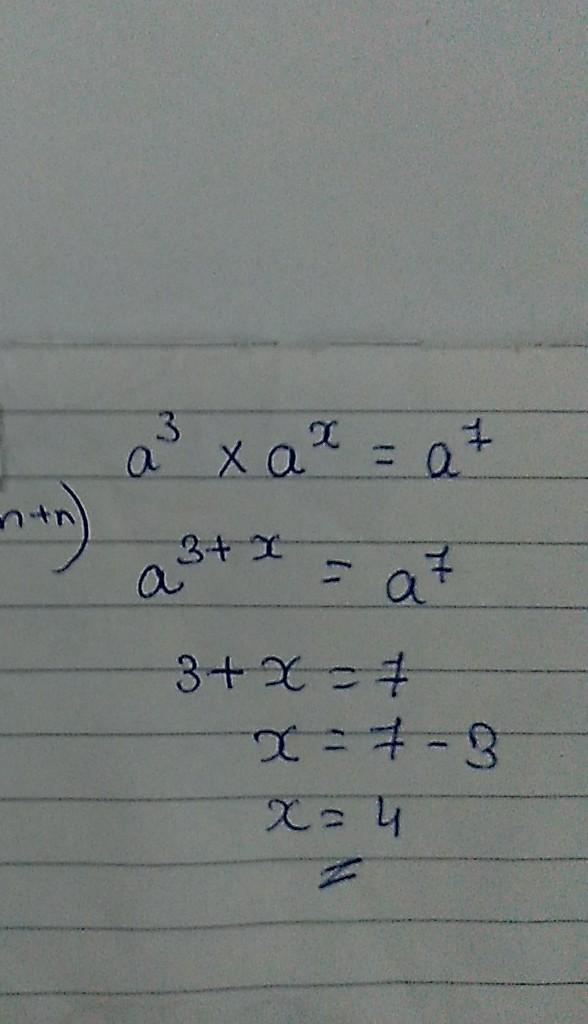 a³ × aˣ = a⁷
n+n)
a³⁺ˣ = a⁷
3 + x = 7
x = 7 - 3
x = 4